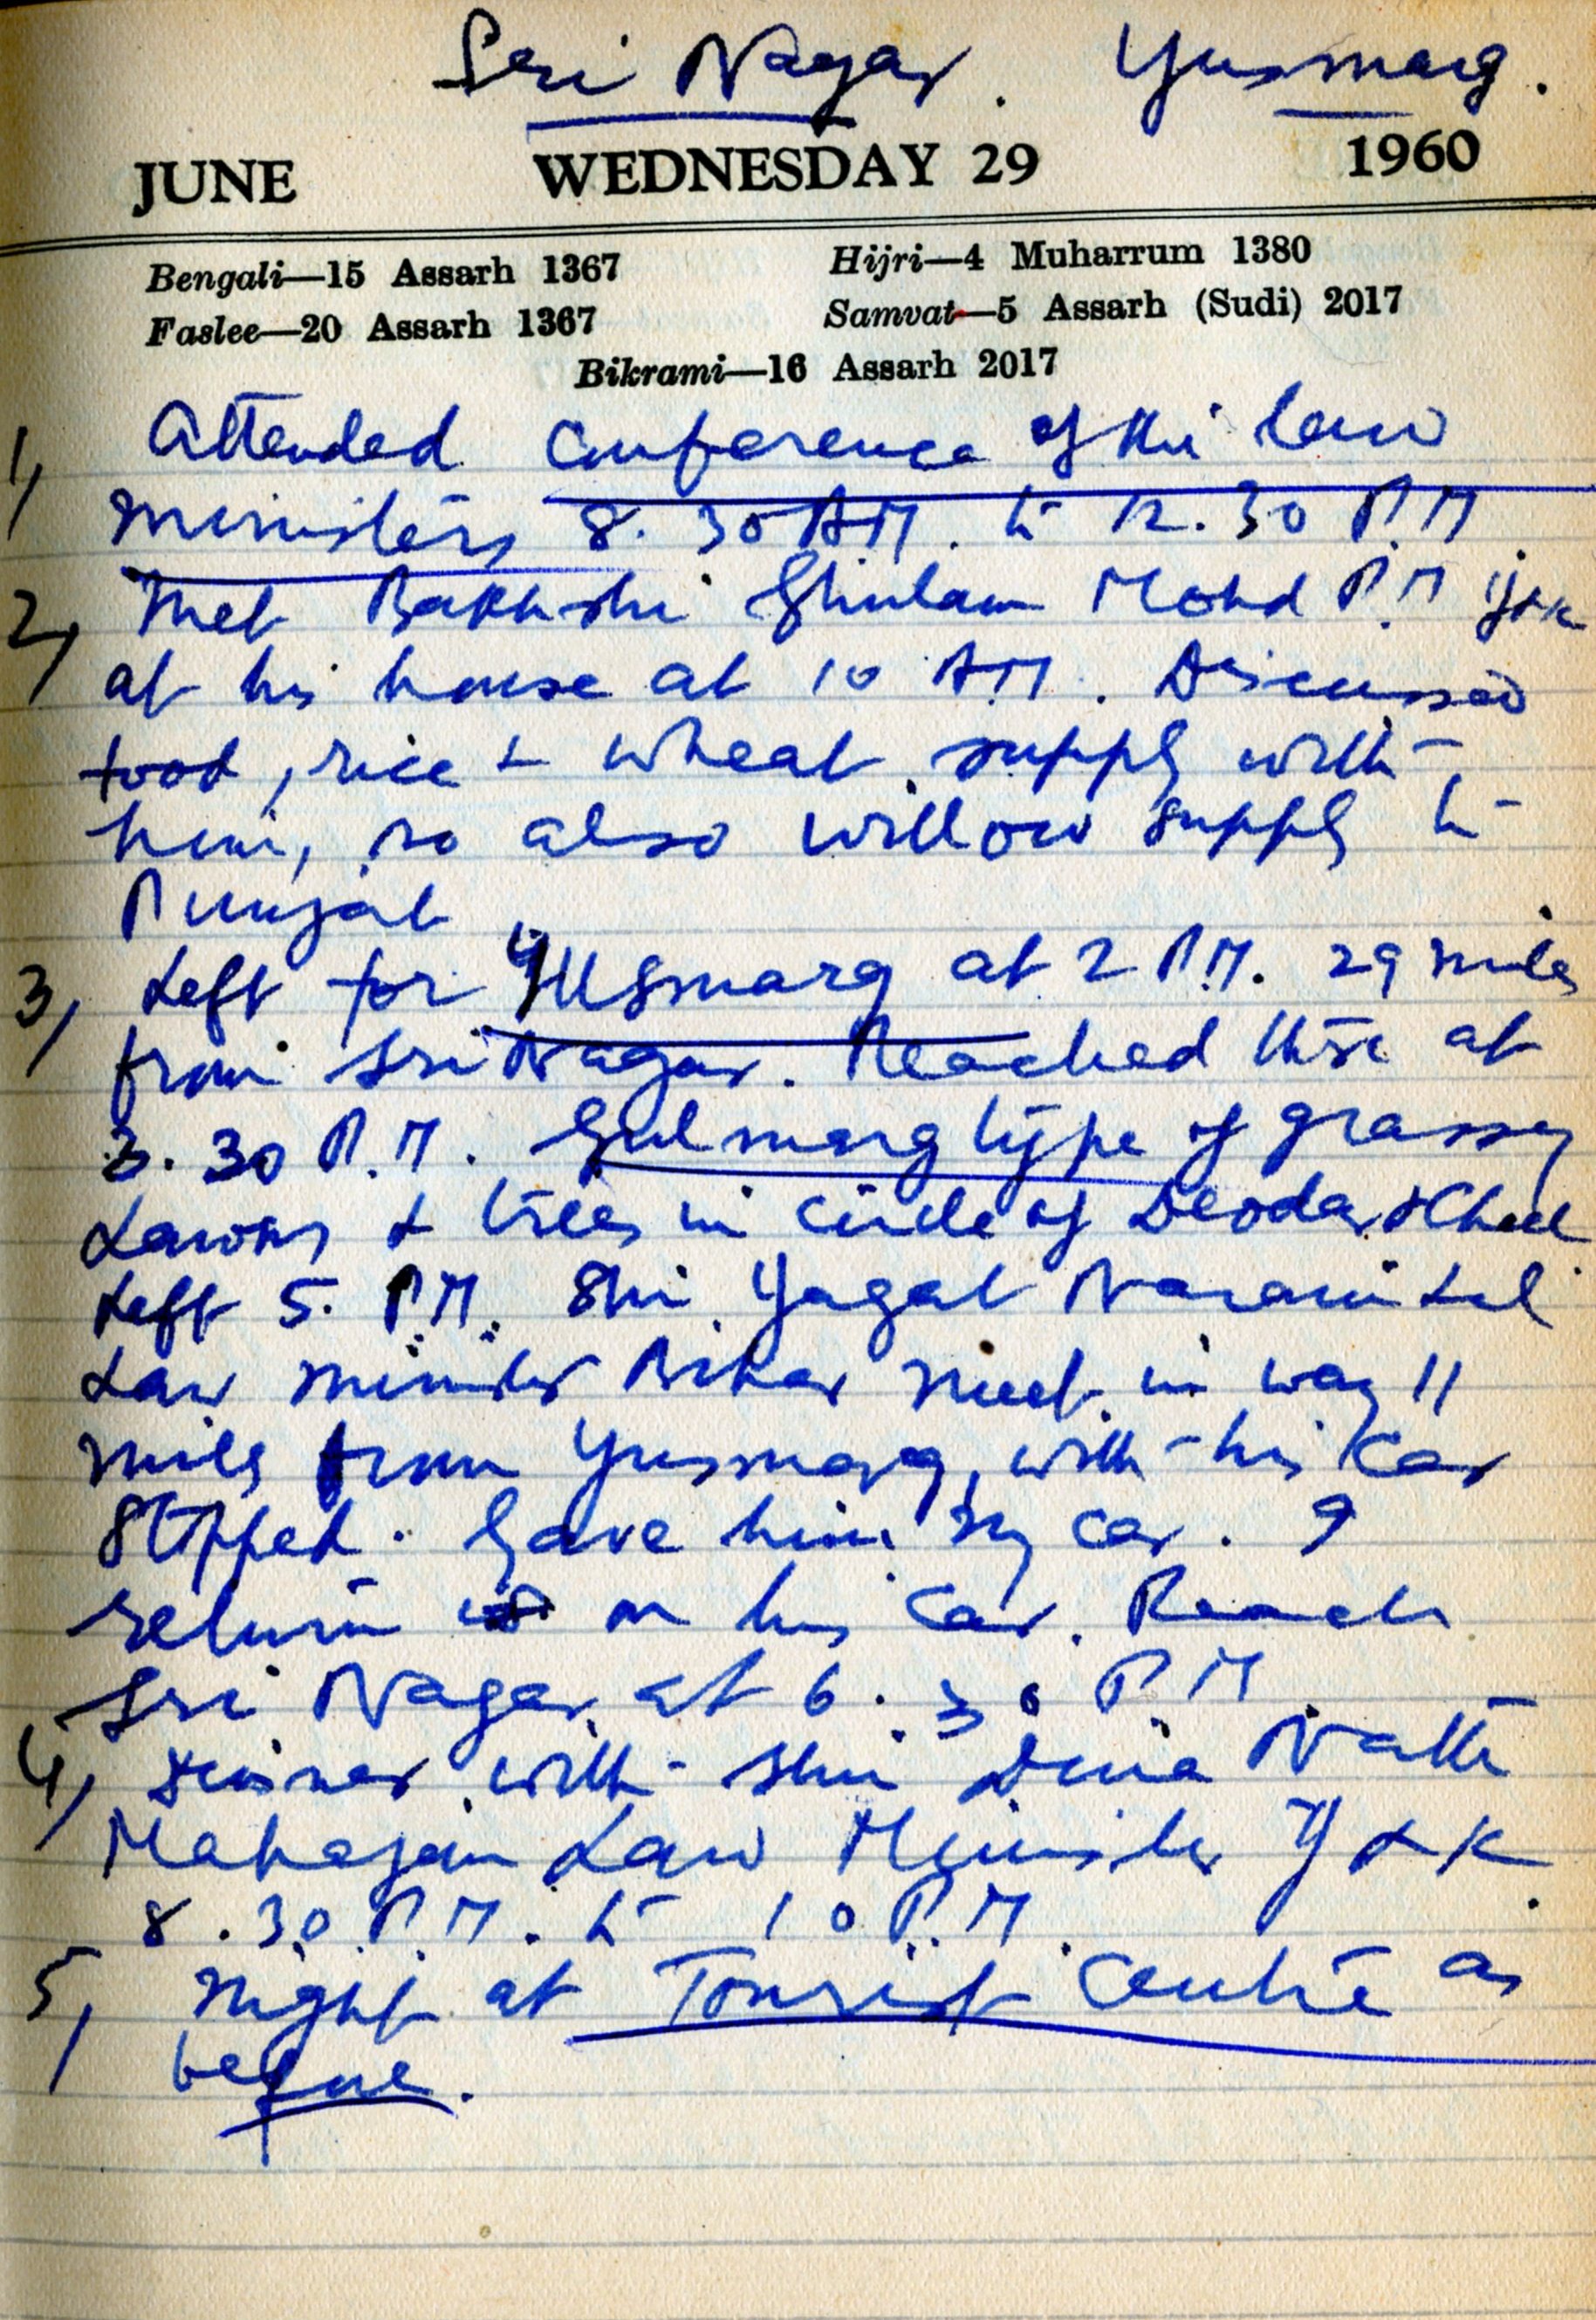 Sri Nagar. Yusmarg.
JUNE WEDNESDAY 29 1960
Bengali—15 Assarh 1367 Hijri—4 Muharrum 1380
Faslee—20 Assarh 1367 Samvat—5 Assarh (Sudi) 2017
Bikrami—16 Assarh 2017
1, Attended Conference of the law
ministers 8.30 AM. to 12.30 P.M.
2, Met Bakhshi Ghulam Mohd P.M J&K
at his house at 10 AM. Discussed
food, rice & wheat supply with
him, so also willow supply to
Punjab
3, Left for Yusmarg at 2 P.M. 29 miles
from Sri Nagar. Reached there at
3.30 P.M. Gulmarg type of grassy
Lawns & trees in circle of Deodar & Cheel
Left 5. P.M. Shri Jagat Narain Lal
Law minister Bihar meet in way 11
miles from Yusmarg, with his Car
Stopped. Gave him my car. I
return on his Car. Reach
Sri Nagar at 6.30 P.M.
4, Dinner with Shri Dina Nath
Mahajan Law Minister J & K
8.30 P.M. to 10 P.M.
5, Night at Tourist Centre as
before.